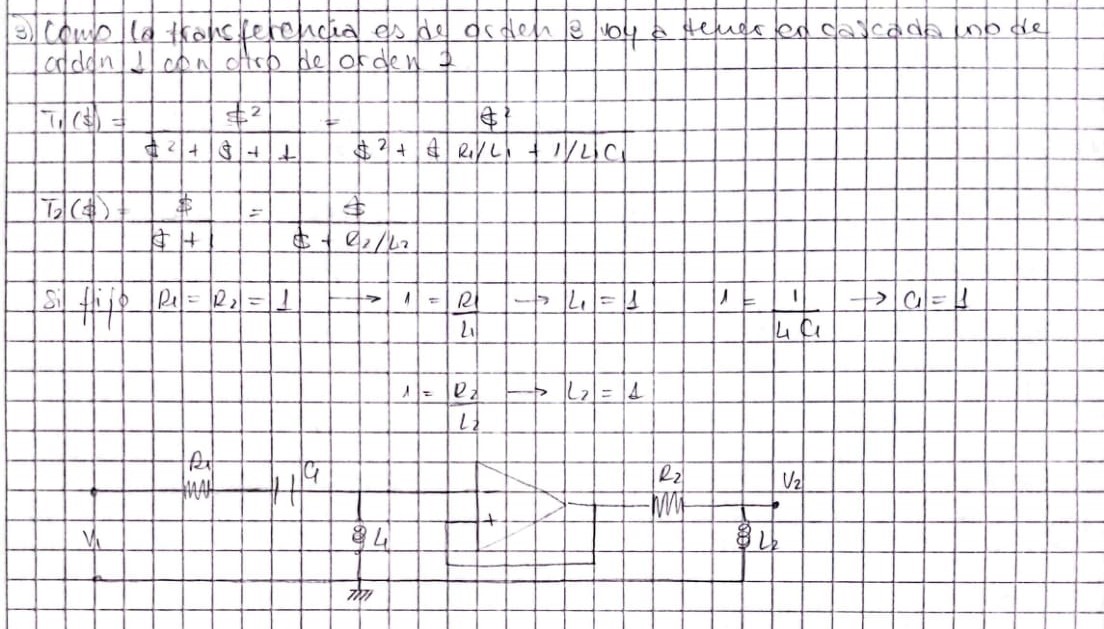 3) Como la transferencia es de orden 3 voy a tener en cascada uno de
orden 1 con otro de orden 2
T₁($) = $² / ($² + $ + 1) = $² / ($² + $ R₁/L₁ + 1/L₁C₁)
T₂($) = $ / ($ + 1) = $ / ($ + R₂/L₂)
Si fijo R₁ = R₂ = 1 → 1 = R₁/L₁ → L₁ = 1 1 = 1/(L₁C₁) → C₁ = 1
1 = R₂/L₂ → L₂ = 1
R₁ C₁ R₂ V₂
- +
V₁ L₁ L₂